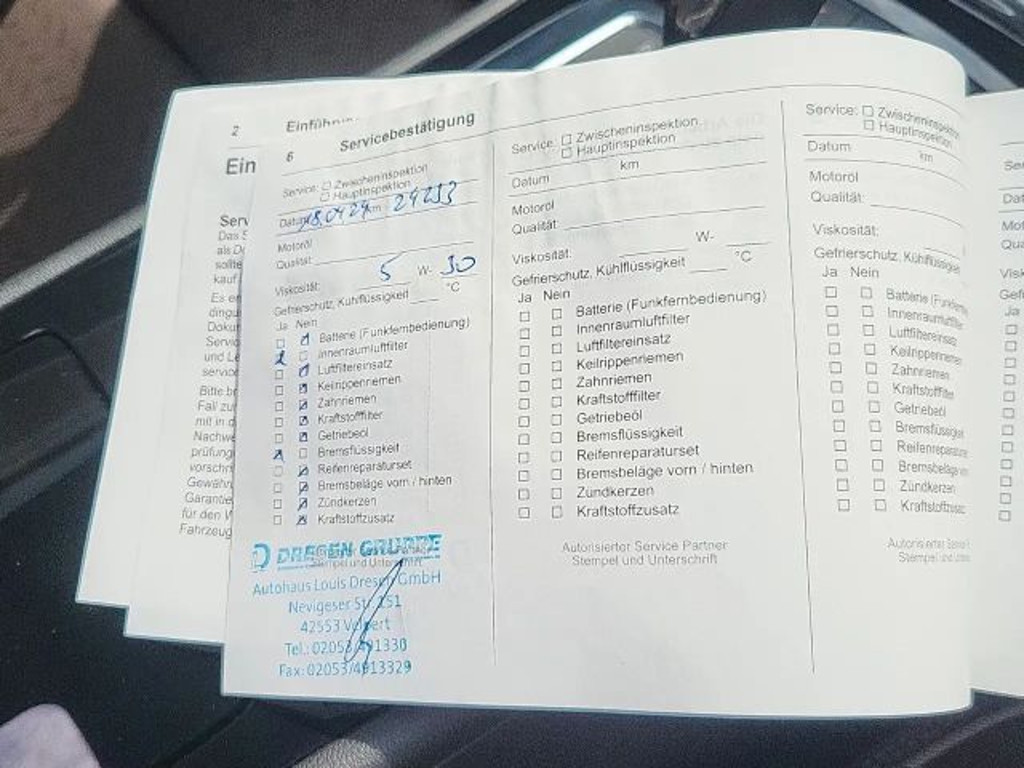 2 Einführung
Ein
Serv
Das S
als D
sollte
kauf
Es er
dingu
Dokur
Servic
und Le
service
Bitte br
Fall zur
mit in d
Nachwe
prüfung
vorschri
Gewähr
Garantie
für den W
Fahrzeug
6 Servicebestätigung
Service: ☐ Zwischeninspektion
☐ Hauptinspektion
Datum 18.04.24 km 24253
Motoröl
Qualität:
Viskosität: 5 W- 30
Gefrierschutz, Kühlflüssigkeit °C
Ja Nein
Batterie (Funkfernbedienung)
Innenraumluftfilter
Luftfiltereinsatz
Keilrippenriemen
Zahnriemen
Kraftstofffilter
Getriebeöl
Bremsflüssigkeit
Reifenreparaturset
Bremsbeläge vorn / hinten
Zündkerzen
Kraftstoffzusatz
DRESEN GRUPPE
Stempel und Unterschrift
Autohaus Louis Dresen GmbH
Nevigeser Str. 151
42553 Velbert
Tel.: 02053/491330
Fax: 02053/4913329
Service: ☐ Zwischeninspektion
☐ Hauptinspektion
Datum km
Motoröl
Qualität:
Viskosität: W-
Gefrierschutz, Kühlflüssigkeit °C
Ja Nein
Batterie (Funkfernbedienung)
Innenraumluftfilter
Luftfiltereinsatz
Keilrippenriemen
Zahnriemen
Kraftstofffilter
Getriebeöl
Bremsflüssigkeit
Reifenreparaturset
Bremsbeläge vorn / hinten
Zündkerzen
Kraftstoffzusatz
Autorisierter Service Partner
Stempel und Unterschrift
Service: ☐ Zwischeninspektion
☐ Hauptinspektion
Datum km
Motoröl
Qualität:
Viskosität:
Gefrierschutz, Kühlflüssigkeit
Ja Nein
Batterie (Funkfern
Innenraumluftfilter
Luftfiltereinsatz
Keilrippenriemen
Zahnriemen
Kraftstofffilter
Getriebeöl
Bremsflüssigkeit
Reifenreparatur
Bremsbeläge vorn
Zündkerzen
Kraftstoffzusatz
Autorisierter Service
Stempel und